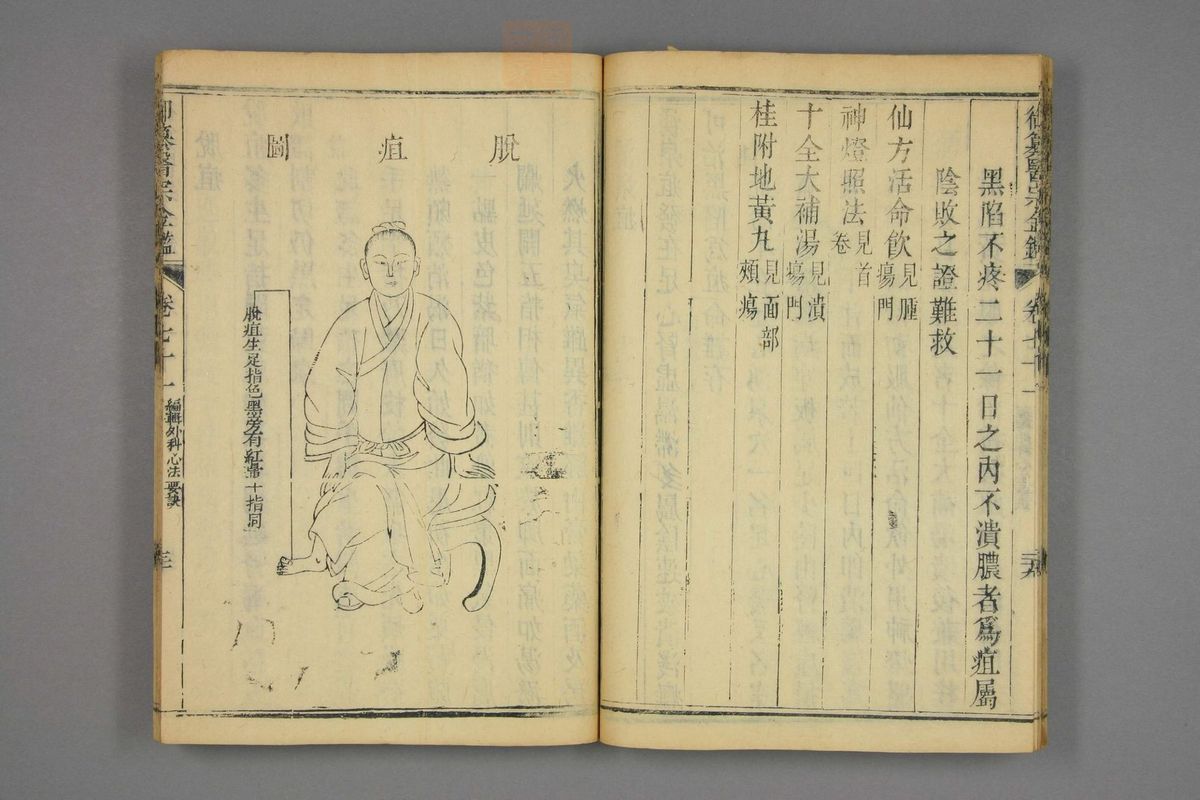 御纂醫宗金鑑
卷七十一
黑陷不疼二十一日之內不潰膿者爲疽屬
陰敗之證難救
仙方活命飮見腫瘍門
神燈照法見首卷
十全大補湯見潰瘍門
桂附地黃丸見面部頰瘍
脫疽圖
脫疽生足指色黑旁有紅暈十指同
御纂醫宗金鑑
卷七十一
編輯外科心法要訣